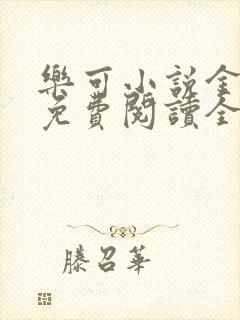 樂可小說全
免費閱讀全
滕召華